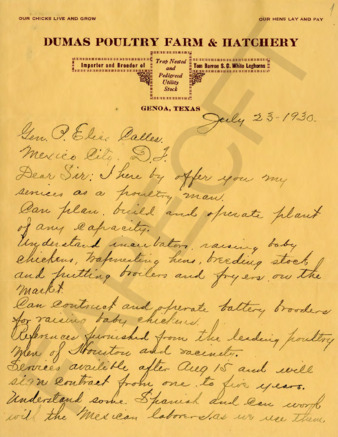 OUR CHICKS LIVE AND GROW
OUR HENS LAY AND PAY
DUMAS POULTRY FARM & HATCHERY
Importer and Breeder of
Trap Nested
and
Pedigreed
Utility
Stock
Tom Barron S. C. White Leghorns
GENOA, TEXAS
July 23-1930.
Gen. P. Elias Calles.
Mexico City, D.F.
Dear Sir; I here by offer you my
services as a poultry man.
Can plan, build and operate plant
of any capacity.
Understand incubators, raising baby
chickens, hens, breeding stock
and putting broilers and fryers on the
market.
Can contruct and operate battery brooders
for raising baby chickens.
References furnished from the leading poultry
men of Houston and
Services availible after Aug 15 and will
sign contract from one to five years.
Understand some Spanish and can work
with the Mexican laborers as we use them